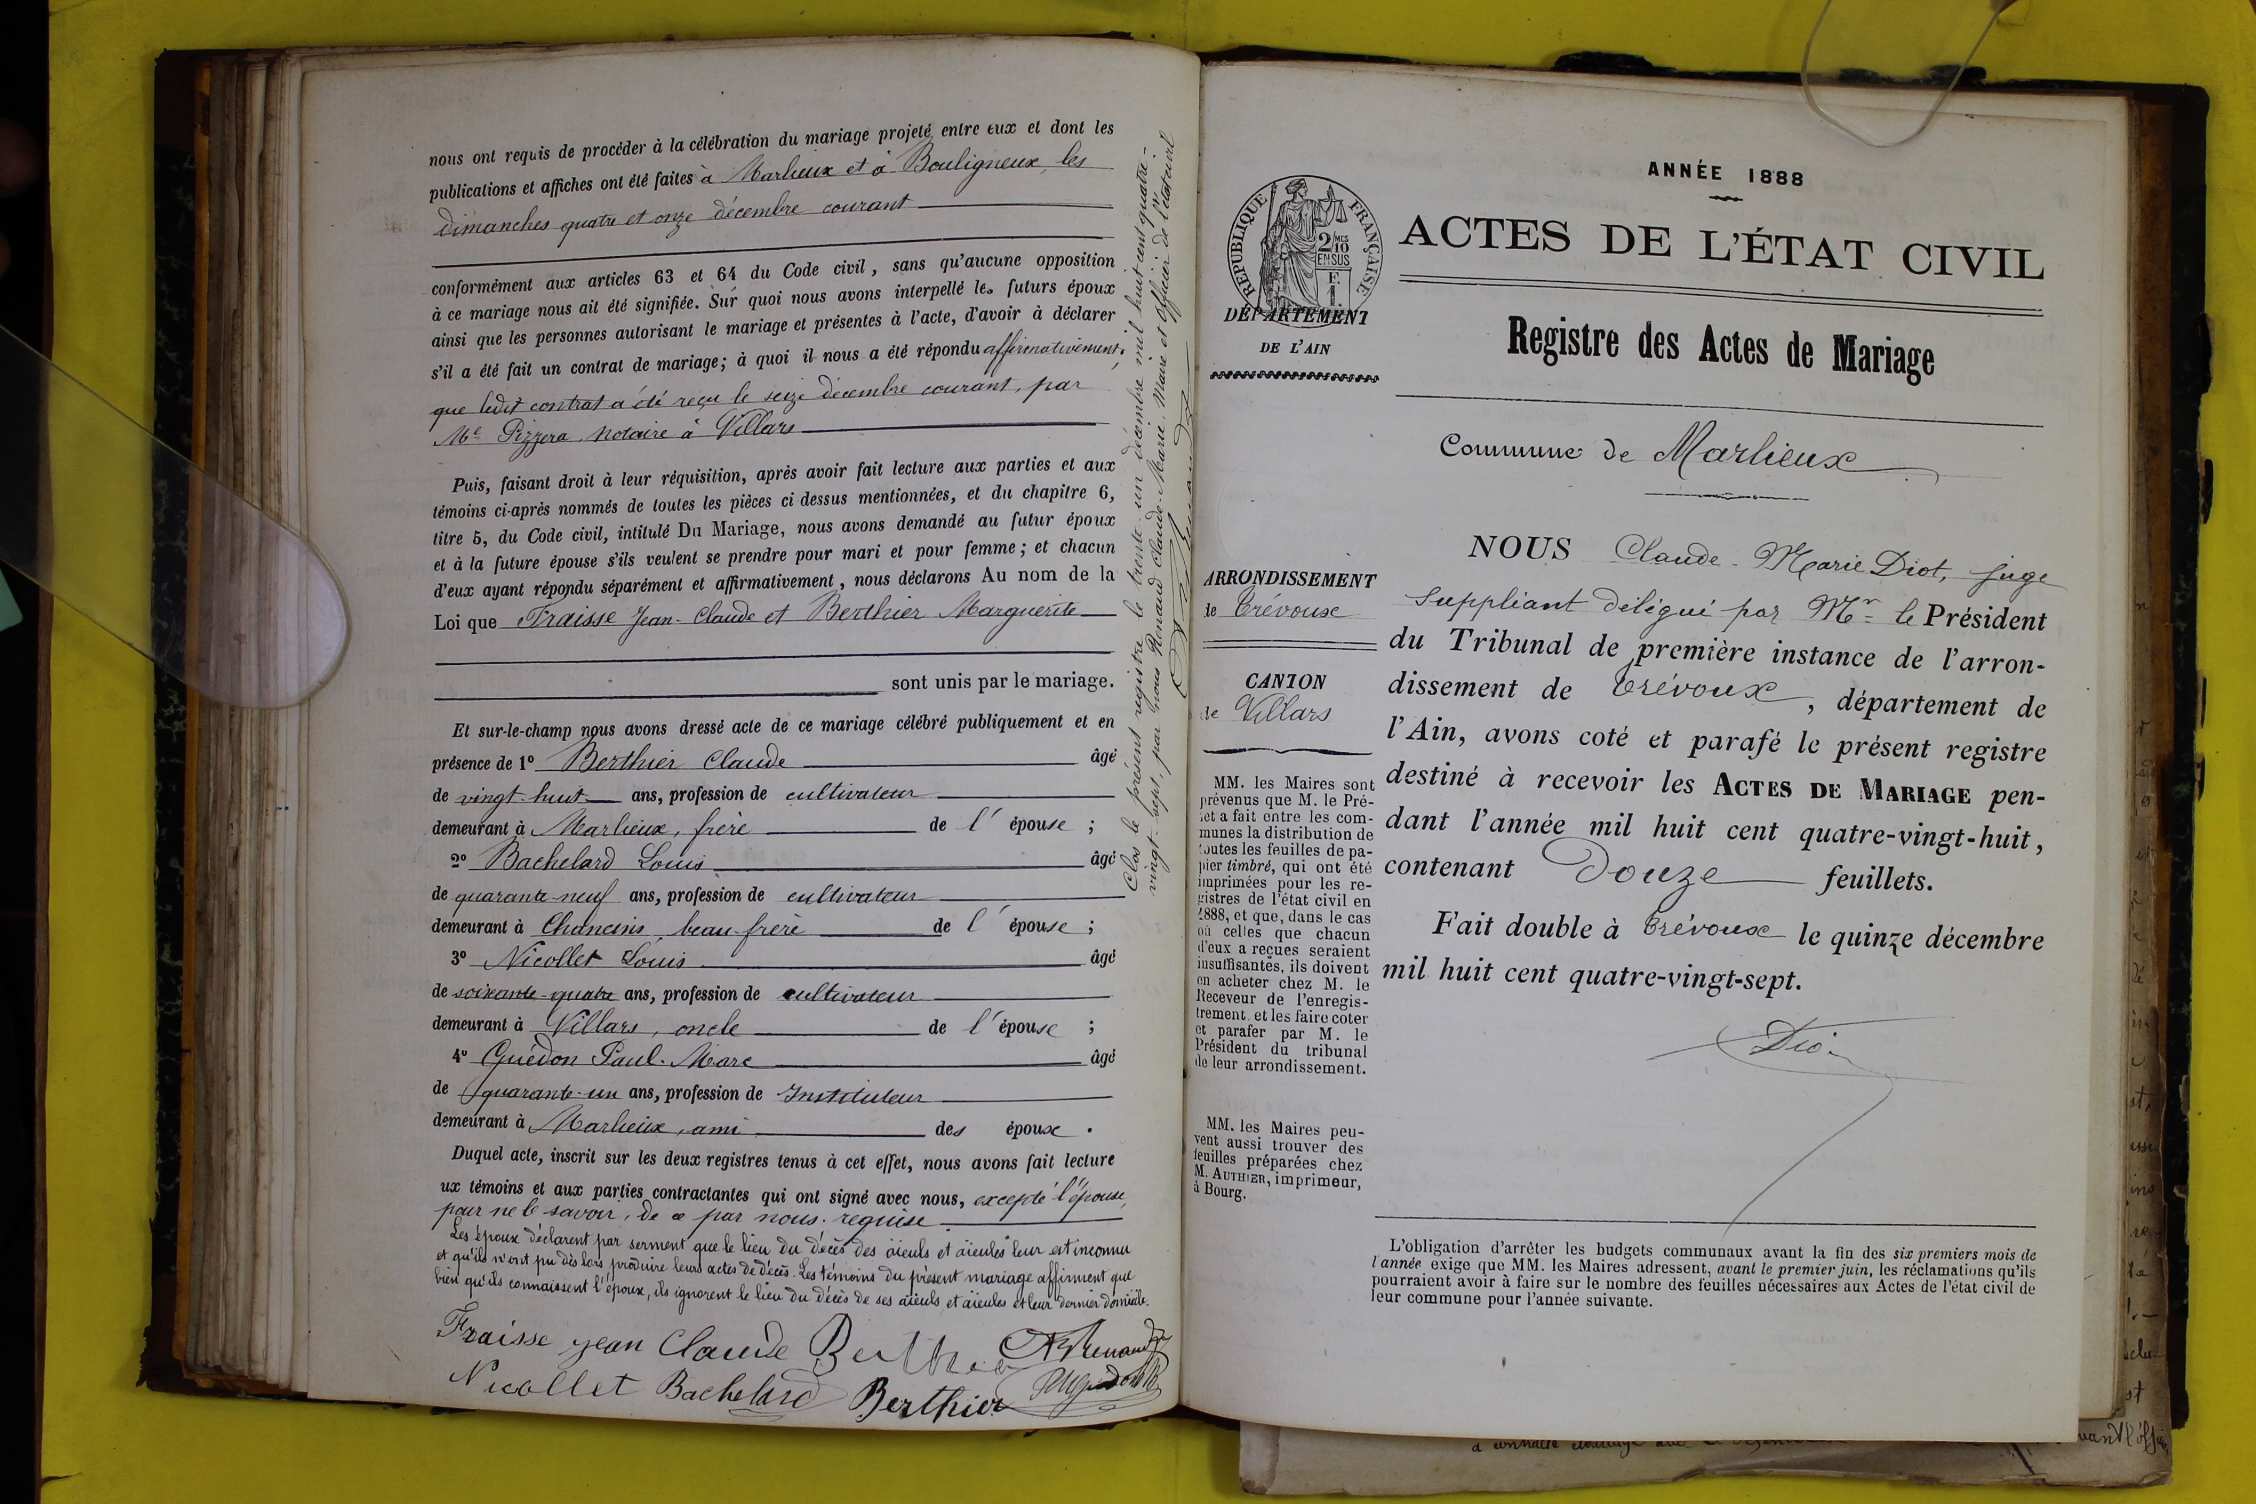 nous ont requis de procéder à la célébration du mariage projeté entre eux et dont les
publications et affiches ont été faites à Marlieux et à Bouligneux, les
dimanches quatre et onze décembre courant
conformément aux articles 63 et 64 du Code civil, sans qu'aucune opposition
à ce mariage nous ait été signifiée. Sur quoi nous avons interpellé les futurs époux
ainsi que les personnes autorisant le mariage et présentes à l'acte, d'avoir à déclarer
s'il a été fait un contrat de mariage; à quoi il nous a été répondu affirmativement,
que ledit contrat a été reçu le seize décembre courant, par
Me Pizzera, notaire à Villars
Puis, faisant droit à leur réquisition, après avoir fait lecture aux parties et aux
témoins ci-après nommés de toutes les pièces ci dessus mentionnées, et du chapitre 6,
titre 5, du Code civil, intitulé Du Mariage, nous avons demandé au futur époux
et à la future épouse s'ils veulent se prendre pour mari et pour femme; et chacun
d'eux ayant répondu séparément et affirmativement, nous déclarons Au nom de la
Loi que Fraisse Jean-Claude et Berthier Marguerite
sont unis par le mariage.
Et sur-le-champ nous avons dressé acte de ce mariage célébré publiquement et en
présence de 1o Berthier Claude âgé
de vingt-huit ans, profession de cultivateur
demeurant à Marlieux, frère de l'épouse;
2o Bachelard Louis âgé
de quarante-neuf ans, profession de cultivateur
demeurant à Chaneins, beau-frère de l'épouse;
3o Nicollet Louis âgé
de soixante-quatre ans, profession de cultivateur
demeurant à Villars, oncle de l'épouse;
4o Guédon Paul-Marc âgé
de quarante-un ans, profession de Instituteur
demeurant à Marlieux, ami des époux.
Duquel acte, inscrit sur les deux registres tenus à cet effet, nous avons fait lecture
ux témoins et aux parties contractantes qui ont signé avec nous, excepté l'épouse,
pour ne le savoir, de ce par nous requise
Les époux déclarent par serment que le lieu du décès des aïeuls et aïeules leur est inconnu
et qu'ils n'ont pu dès lors produire leurs actes de décès. Les témoins du présent mariage affirment que
bien qu'ils connaissent l'époux, ils ignorent le lieu du décès de ses aïeuls et aïeules et leur dernier domicile.
Fraisse jean Claude Berthier Renaud
Nicollet Bachelard Berthier
Clos le présent registre le trente-un décembre mil huit cent quatre-
vingt-sept, par nous Renaud Claude-Marie, Maire et officier de l'état civil
Renaud
ANNÉE 1888
RÉPUBLIQUE FRANÇAISE
2/10 MES EN SUS
F. 1.
ACTES DE L'ÉTAT CIVIL
DÉPARTEMENT
DE L'AIN
Registre des Actes de Mariage
Commune de Marlieux
ARRONDISSEMENT
de Trévoux
CANTON
de Villars
MM. les Maires sont
prévenus que M. le Pré-
fet a fait entre les com-
munes la distribution de
toutes les feuilles de pa-
pier timbré, qui ont été
imprimées pour les re-
gistres de l'état civil en
1888, et que, dans le cas
où celles que chacun
d'eux a reçues seraient
insuffisantes, ils doivent
en acheter chez M. le
Receveur de l'enregis-
trement et les faire coter
et parafer par M. le
Président du tribunal
de leur arrondissement.
MM. les Maires peu-
vent aussi trouver des
feuilles préparées chez
M. AUTHIER, imprimeur,
à Bourg.
NOUS Claude-Marie Diot, juge
suppliant délégué par Mr le Président
du Tribunal de première instance de l'arron-
dissement de Trévoux, département de
l'Ain, avons coté et parafé le présent registre
destiné à recevoir les ACTES DE MARIAGE pen-
dant l'année mil huit cent quatre-vingt-huit,
contenant Douze feuillets.
Fait double à Trévoux le quinze décembre
mil huit cent quatre-vingt-sept.
Diot
L'obligation d'arrêter les budgets communaux avant la fin des six premiers mois de
l'année exige que MM. les Maires adressent, avant le premier juin, les réclamations qu'ils
pourraient avoir à faire sur le nombre des feuilles nécessaires aux Actes de l'état civil de
leur commune pour l'année suivante.